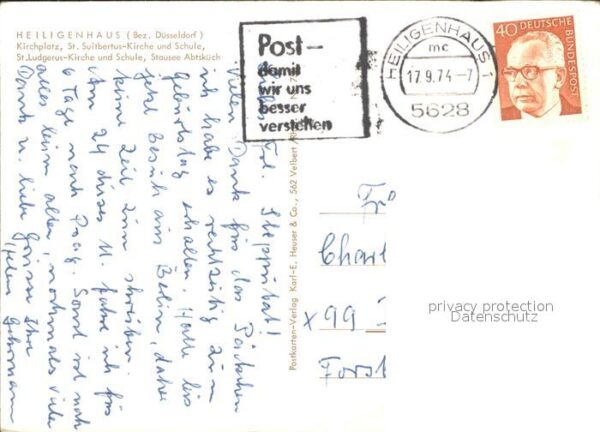 HEILIGENHAUS (Bez. Düsseldorf)
Kirchplatz, St. Suitbertus-Kirche und Schule,
St. Ludgerus-Kirche und Schule, Stausee Abtsküch
Post-
damit
wir uns
besser
verstehen
HEILIGENHAUS 1
mc
17.9.74-7
5628
40 DEUTSCHE
BUNDESPOST
Frl.
Vielen Dank für das Päckchen
ich habe es rechtzeitig zum
Geburtstag erhalten. Hatte bis
jetzt Besuch aus Berlin, daher
keine Zeit zum schreiben.
Am 24 dieses M. fahre ich für
6 Tage nach Prag. Sonst ist noch
alles beim alten, nochmals vielen
Dank u. liebe Grüsse Ihre
Helene
Postkarten-Verlag Karl-E. Heuser & Co., 562 Velbert
Fr
Charl
x99
Forst
privacy protection
Datenschutz